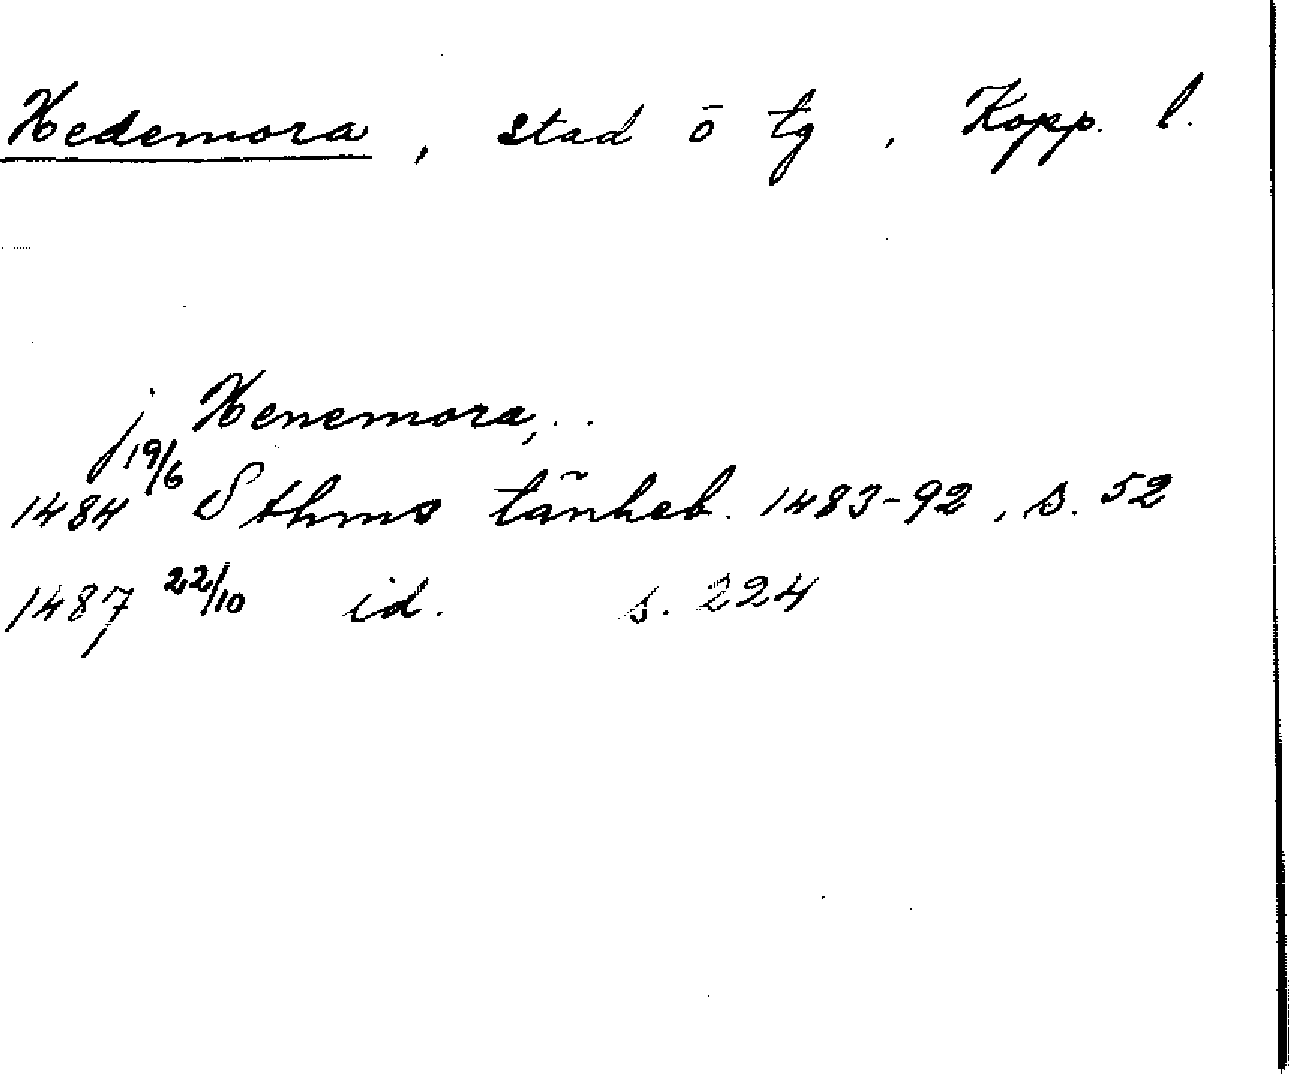 Hedemora, stad ō tg, Kopp. l.
j Henemora,..
1484 19/6 Sthms tänkeb. 1483-92, s. 52
1487 22/10 id. s. 224